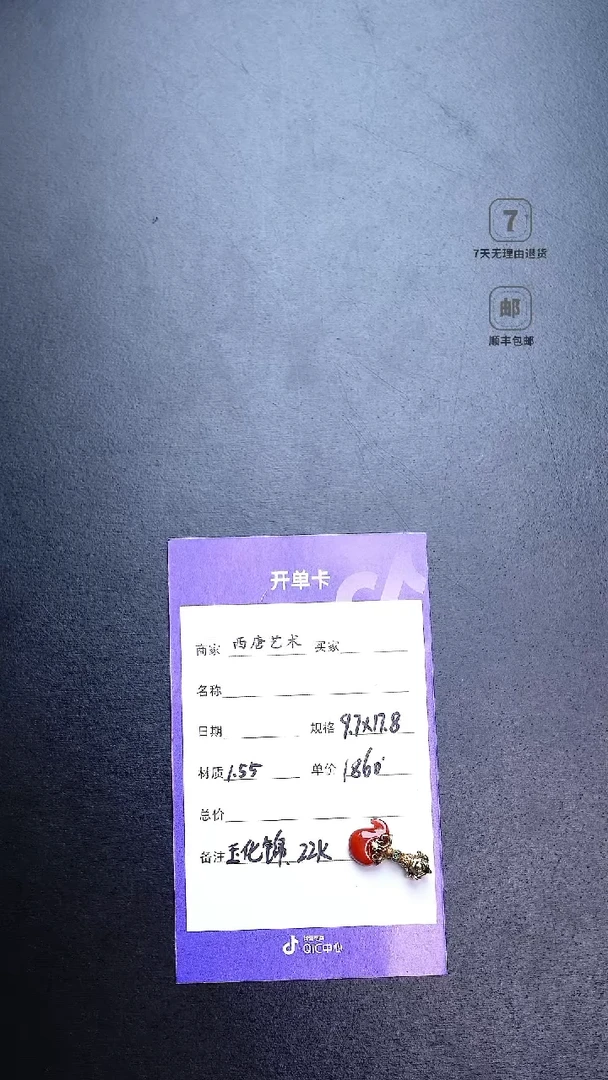 7
7天无理由退货
邮
顺丰包邮
开单卡
商家 西唐艺术 买家
名称
日期 规格 9.7x17.8
材质 1.55 单价 1860
总价
备注 玉化锦 22K
QIC中心